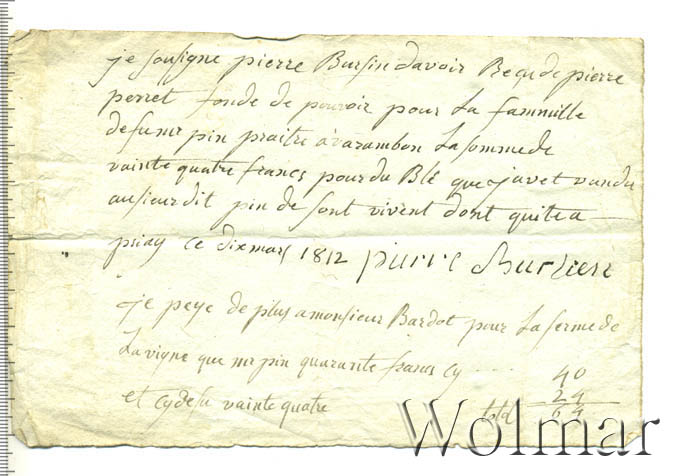 je sousigne pierre Bursin davoir Recu de pierre
perret fondé de pouvoir pour La fammille
defu mr pin praitre a varambon La somme de
vainte quatre francs pour du Blé que javet vandu
au sieur dit pin de sont vivent dont quite a
priay ce dix mars 1812 pierre
je peye de plus a monsieur Bardot pour La ferme de
La vigne que mr pin quarante francs cy .... 40
et cy desu vainte quatre 24
total 64
Wolmar